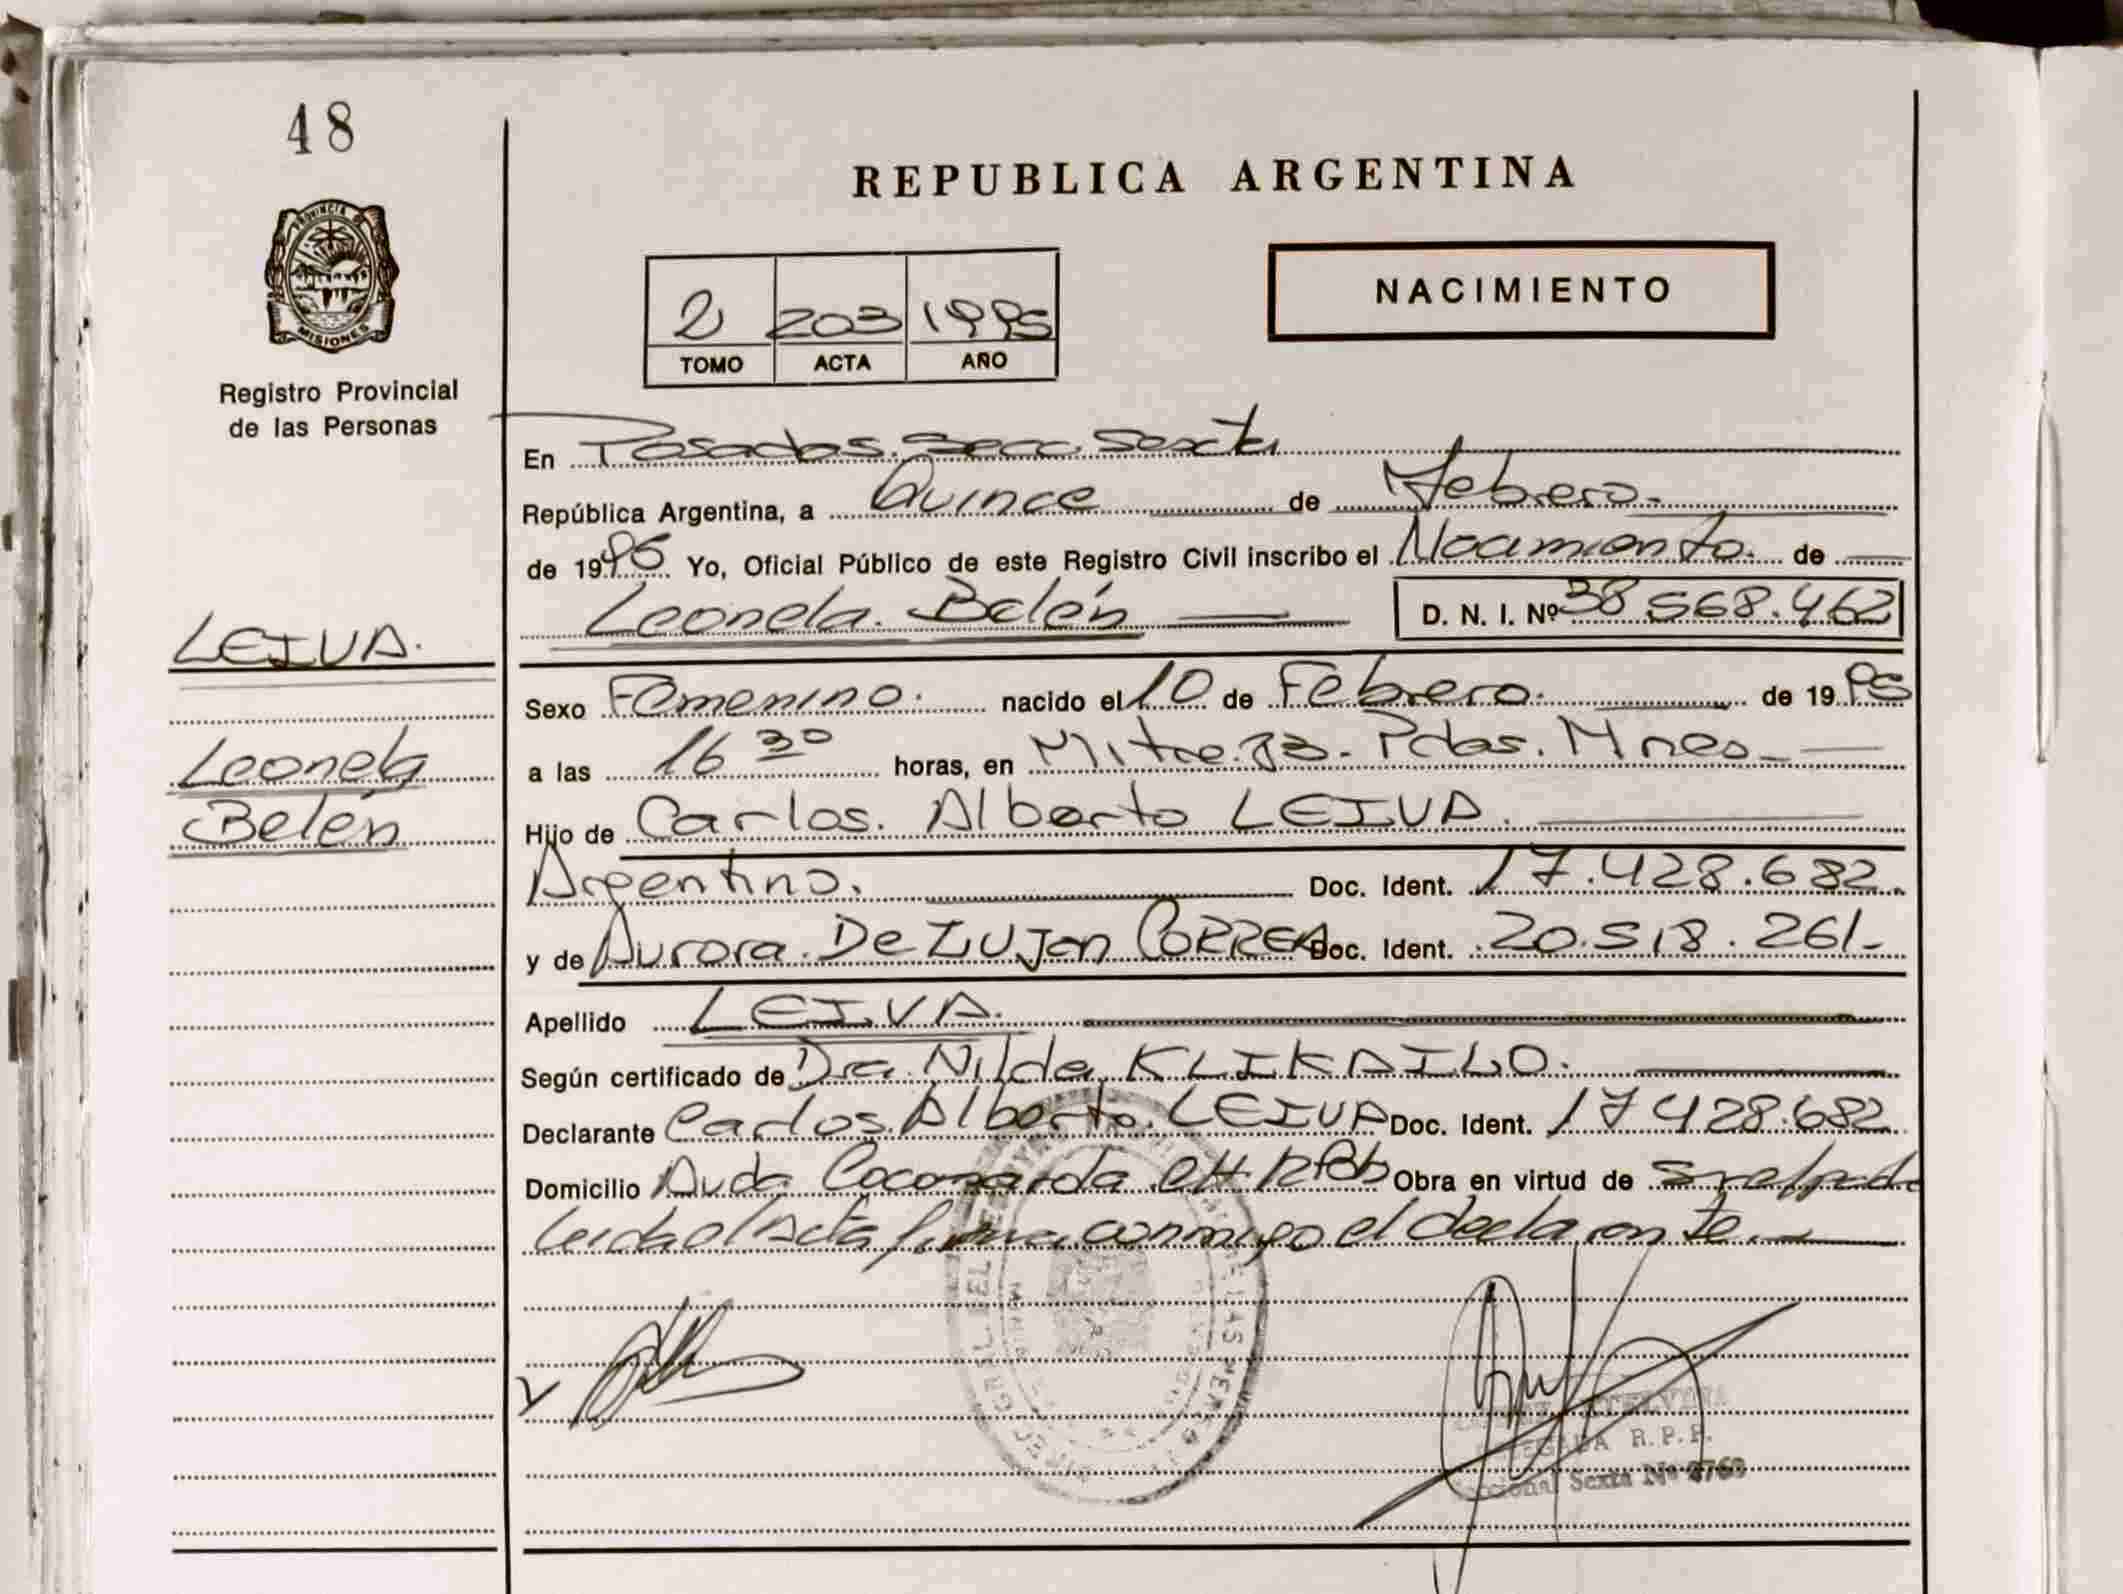 48
PROVINCIA DE
MISIONES
Registro Provincial
de las Personas
REPUBLICA ARGENTINA
2 203 1995
TOMO ACTA AÑO
NACIMIENTO
En Posadas. Secc. Sexta
República Argentina, a Quince de Febrero.
de 1995 Yo, Oficial Público de este Registro Civil inscribo el Nacimiento. de
Leonela. Belén D. N. I. Nº 38.568.462
LEIVA.
Leonela
Belén
Sexo Femenino. nacido el 10 de Febrero. de 1995
a las 16 30 horas, en Mitre. Pdas. Mnes
Hijo de Carlos. Alberto LEIVA.
Argentino. Doc. Ident. 17.428.682.
y de Aurora. De LUJan CORREA Doc. Ident. 20.518.261-
Apellido LEIVA.
Según certificado de Dra. Nilda KLIKAILO.
Declarante Carlos. Alberto. LEIVA Doc. Ident. 17.428.682
Domicilio Avda Cocomarola Obra en virtud de
Leida el Acta firma conmigo el declarante.
R. P. P.
Sexta Nº